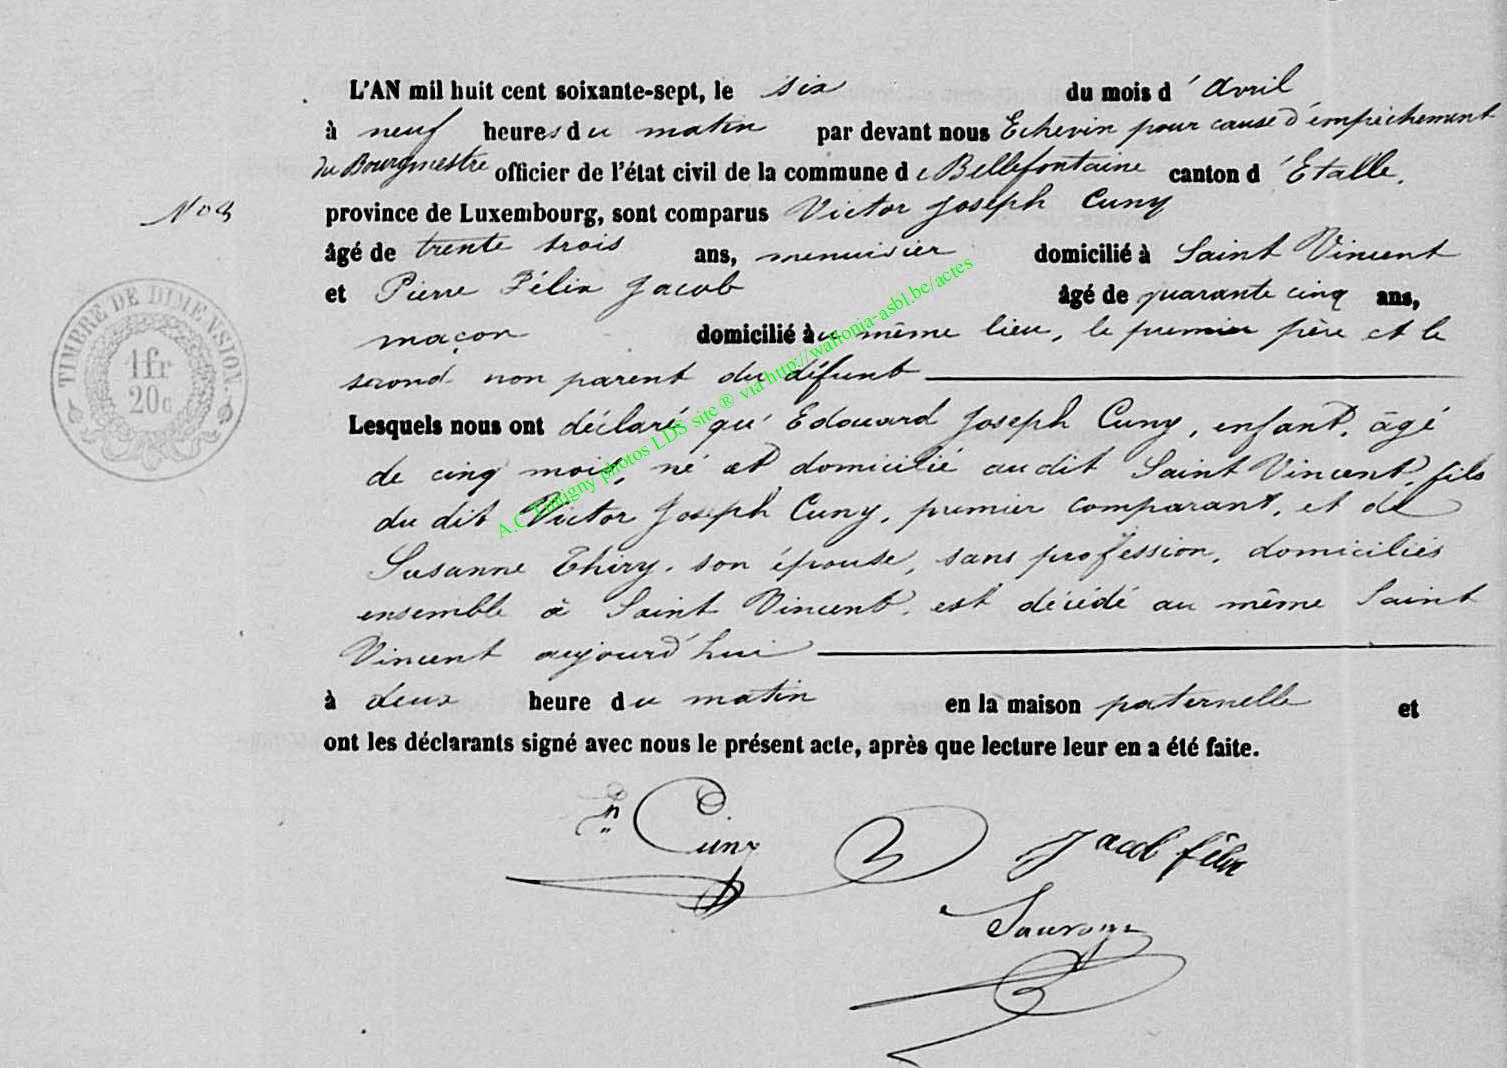 L'AN mil huit cent soixante-sept, le six du mois d'avril
à neuf heures du matin par devant nous Echevin pour cause d'émpêchement
du Bourgmestre officier de l'état civil de la commune de Bellefontaine canton d'Etalle,
province de Luxembourg, sont comparus Victor Joseph Cuny
âgé de trente trois ans, menuisier domicilié à Saint Vincent
et Pierre Félix Jacob âgé de quarante cinq ans,
maçon domicilié au même lieu, le premier père et le
second non parent du défunt
Lesquels nous ont déclaré qu'Edouard Joseph Cuny, enfant, âgé
de cinq mois, né et domicilié audit Saint Vincent, fils
du dit Victor Joseph Cuny, premier comparant, et de
Susanne Thiry, son épouse, sans profession, domiciliés
ensemble à Saint Vincent, est décédé au même Saint
Vincent aujourd'hui
à deux heure du matin en la maison paternelle et
ont les déclarants signé avec nous le présent acte, après que lecture leur en a été faite.
Cuny
Jacob félix
TIMBRE DE DIMENSION.
1 fr
20c
A.C Tintigny photos LDS site ® via http://wallonia-asbl.be/actes